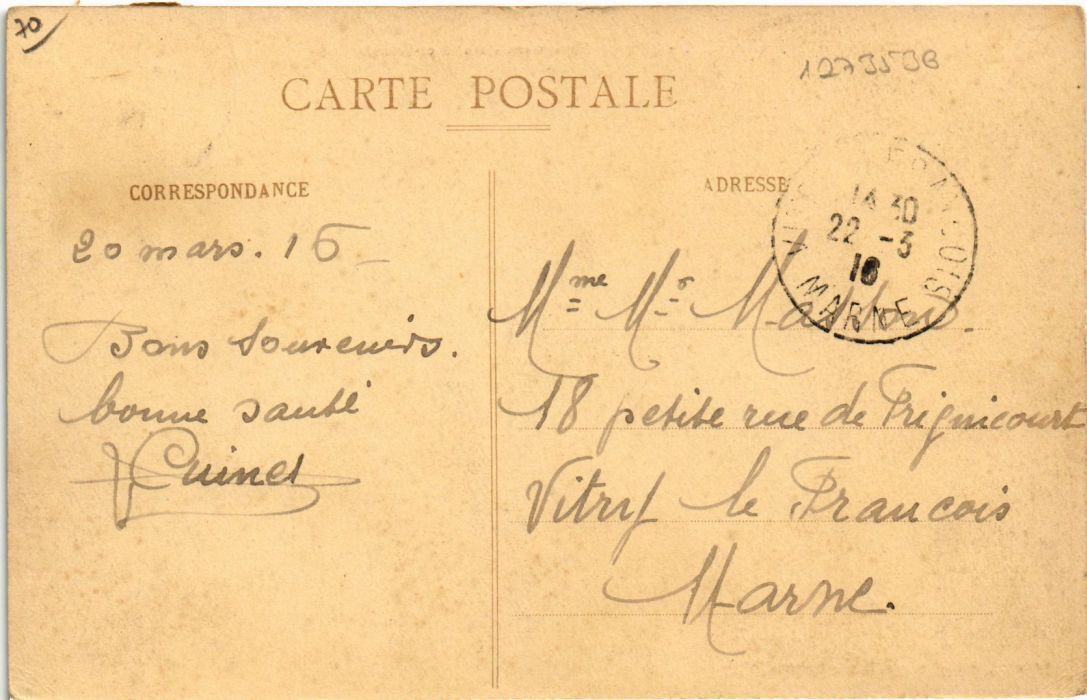 70
1273536
CARTE POSTALE
CORRESPONDANCE
20 mars. 16
Bons Souvenirs.
bonne santé
Cuinet
ADRESSE
FRANCOIS
14 30
22 - 3
16
MARNE
Mme Mr
18 petite rue de Frignicourt
Vitry le Francois
Marne.